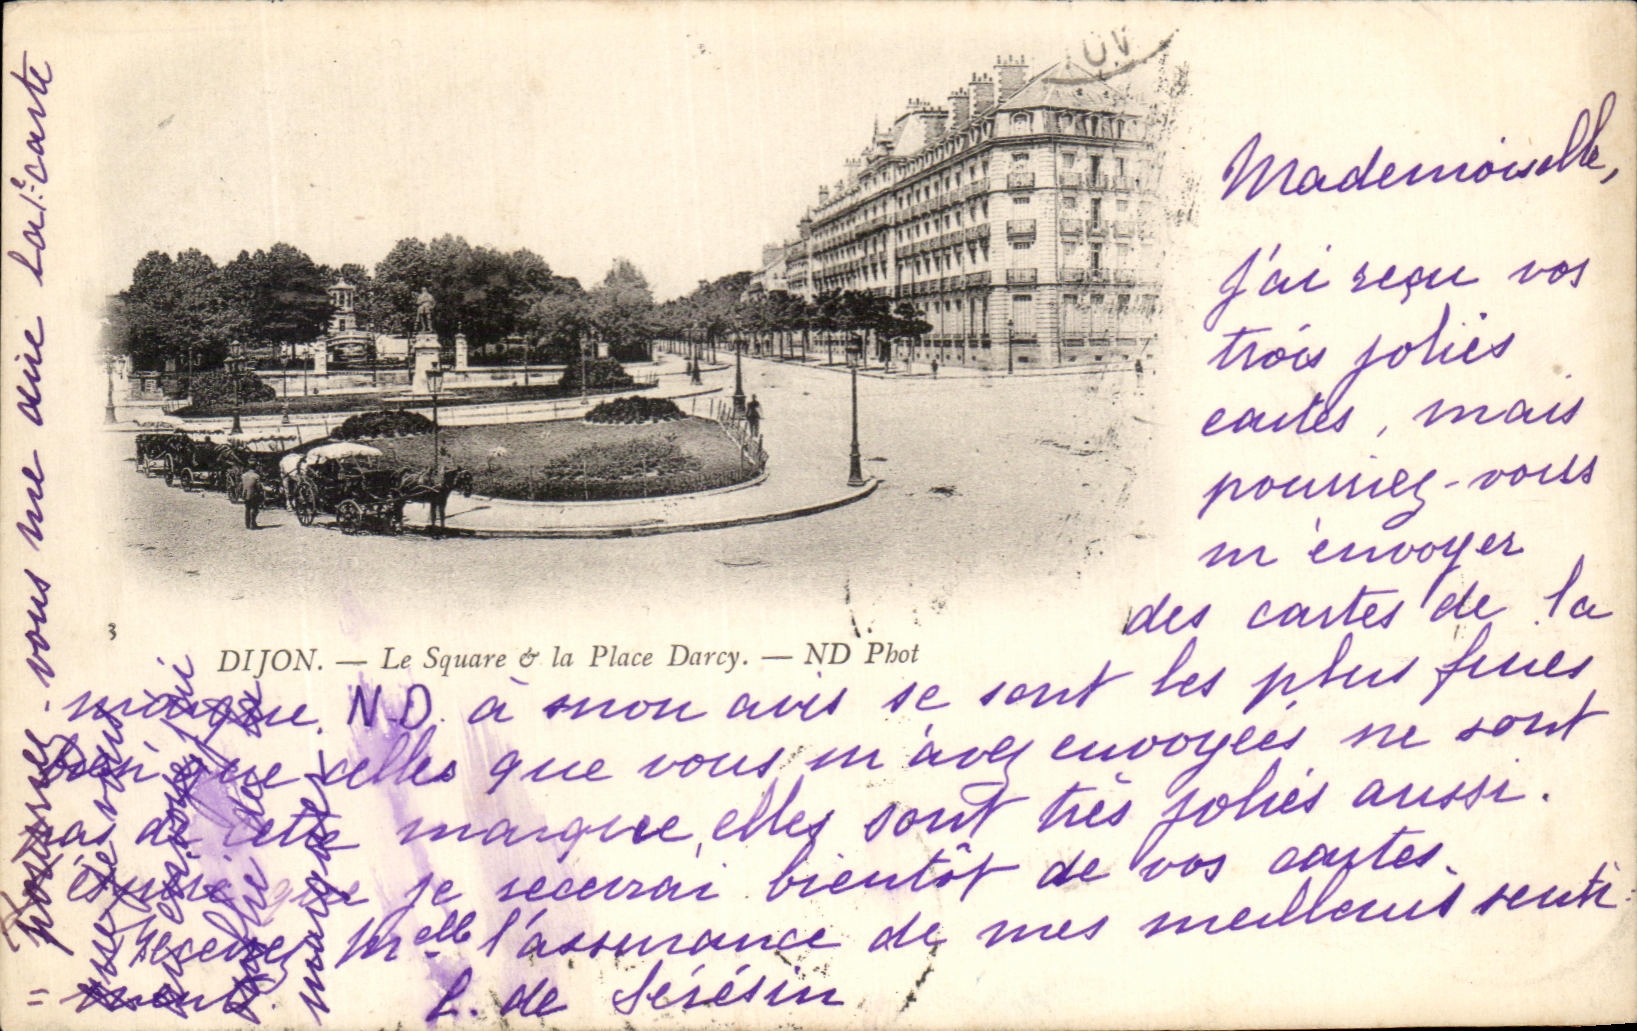 Mademoiselle,
J'ai reçu vos
trois jolies
cartes, mais
pourriez-vous
m'envoyer
des cartes de la
3
DIJON. — Le Square & la Place Darcy. — ND Phot
marque N.D. à mon avis se sont les plus fines
bien que celles que vous m'avez envoyées ne sont
pas de cette marque, elles sont très jolies aussi.
que je recevrai bientôt de vos cartes.
Recevez Melle l'assurance de mes meilleurs senti-
=ments.
L. de Sérésin
Pourriez-vous me dire la 1e carte
marque